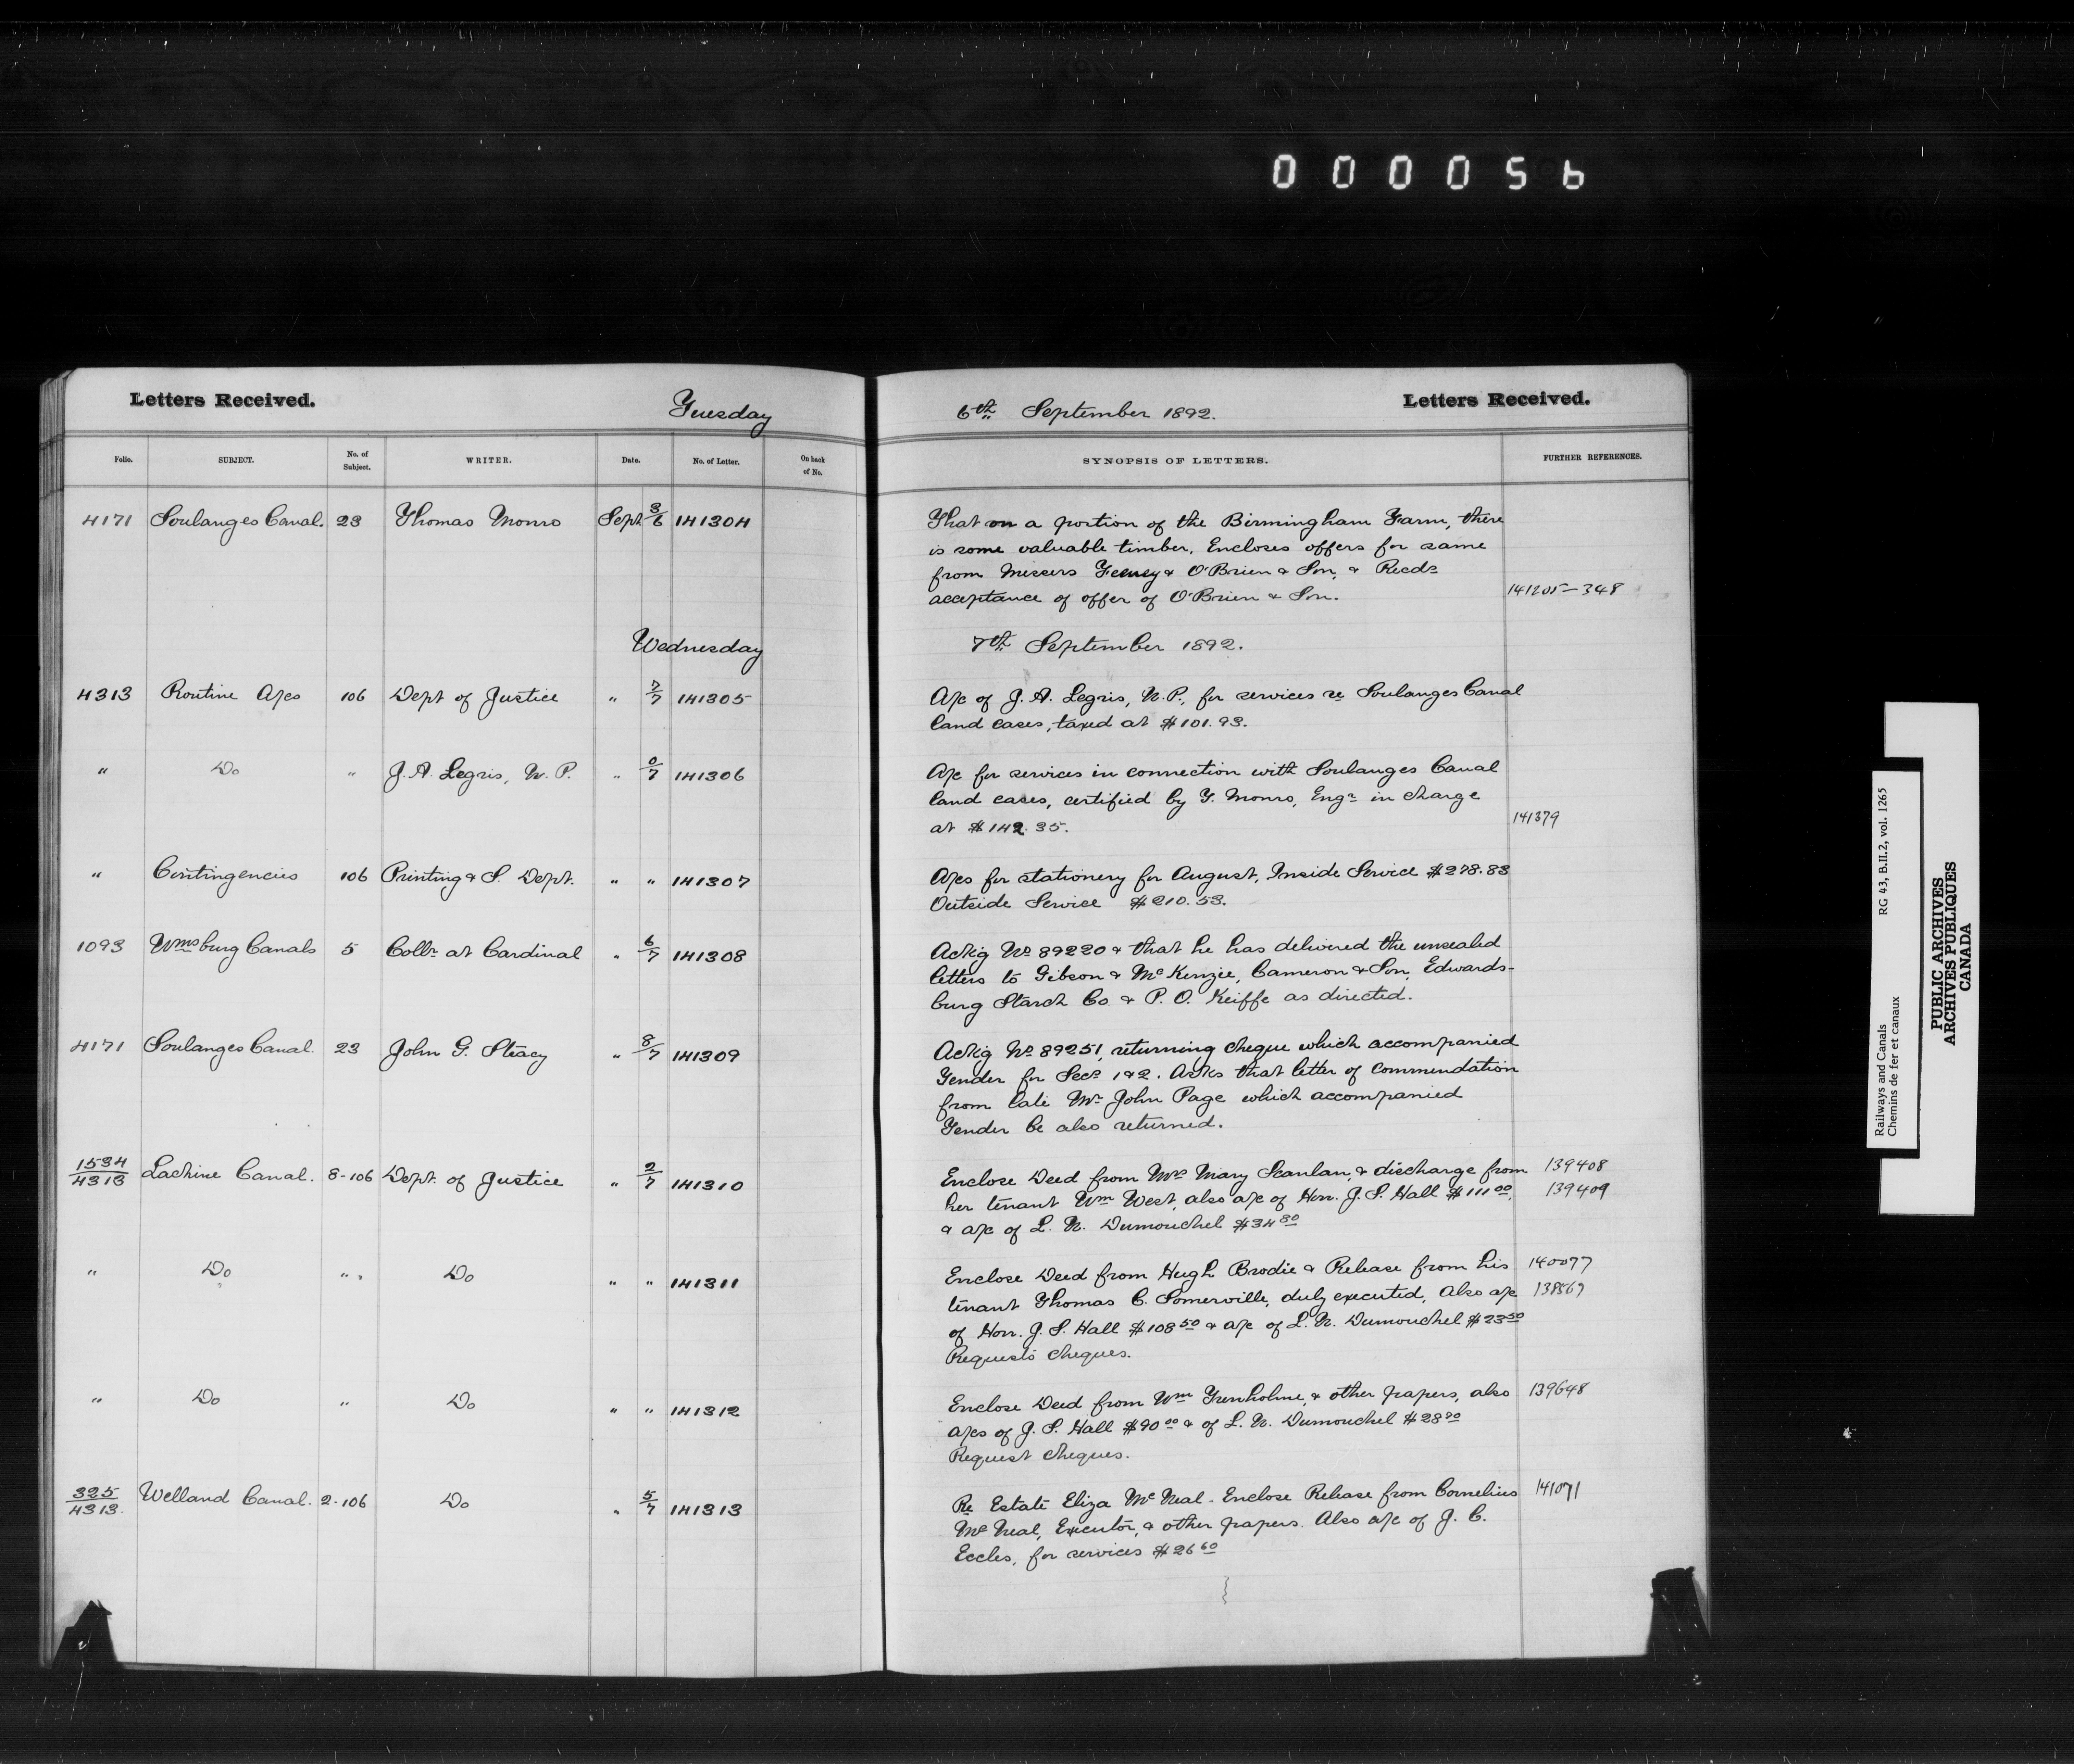 000056
Letters Received.
Tuesday
6th September 1892.
Letters Received.
Folio. SUBJECT. No. of Subject. WRITER. Date. No. of Letter. On back of No. SYNOPSIS OF LETTERS. FURTHER REFERENCES.
4171 Soulanges Canal. 23 Thomas Monro Sept 3/6 141304
That on a portion of the Birmingham Farm, there
is some valuable timber. Encloses offers for same
from Messrs Feeney & O'Brien & Son, & Recds
acceptance of offer of O'Brien & Son. 141205–348
Wednesday 7th September 1892.
4313 Routine A/cs 106 Dept of Justice " 7/7 141305
A/c of J. A. Legris, N.P., for services re Soulanges Canal
land cases, taxed at $101.93.
" Do " J. A. Legris, N. P. " 0/7 141306
A/c for services in connection with Soulanges Canal
land cases, certified by T. Monro, Engr in charge
at $142.35. 141379
" Contingencies 106 Printing & S. Dept. " " 141307
A/cs for stationery for August, Inside Service $278.83
Outside Service $210.53.
1093 Wmsburg Canals 5 Collr at Cardinal " 6/7 141308
Ackg No 89220 & that he has delivered the unsealed
letters to Gibson & McKenzie, Cameron & Son, Edwards-
burg Starch Co. & P. O. Keiffe as directed.
4171 Soulanges Canal. 23 John G. Stacy " 8/7 141309
Ackg No 89251, returning cheque which accompanied
Tender for Secs 1 & 2. Asks that letter of commendation
from late Mr John Page which accompanied
Tender be also returned.
1534/4313 Lachine Canal. 8-106 Dept. of Justice " 2/7 141310
Enclose Deed from Mrs Mary Scanlan, & discharge from 139408
her tenant Wm West, also a/c of Hon. J. S. Hall $111.00, 139409
& a/c of L. N. Dumouchel $34.80
" Do " " Do " " 141311
Enclose Deed from Hugh Brodie & Release from his 140077
tenant Thomas C. Somerville, duly executed, Also a/c 138869
of Hon. J. S. Hall $108.50 & a/c of L. N. Dumouchel $23.50
Requests cheques.
" Do " Do " " 141312
Enclose Deed from Wm Trenholme, & other papers, also 139648
a/cs of J. S. Hall $90.00 & of L. N. Dumouchel $28.90
Request cheques.
325/4313. Welland Canal. 2-106 Do " 5/7 141313
Re Estate Eliza McNeal. Enclose Release from Cornelius 141071
McNeal, Executor, & other papers. Also a/c of J. C.
Eccles, for services $26.60
Railways and Canals RG 43, B.II.2, vol. 1265
Chemins de fer et canaux
PUBLIC ARCHIVES
ARCHIVES PUBLIQUES
CANADA